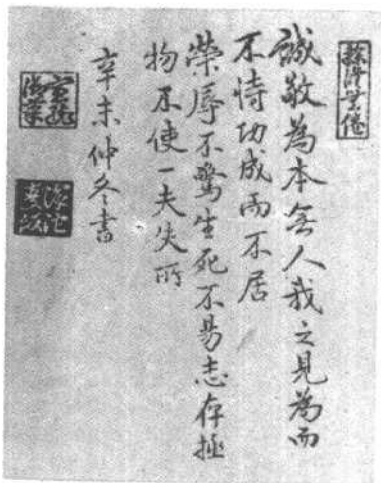 誠敬為本無人我之見為而
不恃功成而不居
榮辱不驚生死不易志存拯
物不使一夫失所
辛未仲冬書